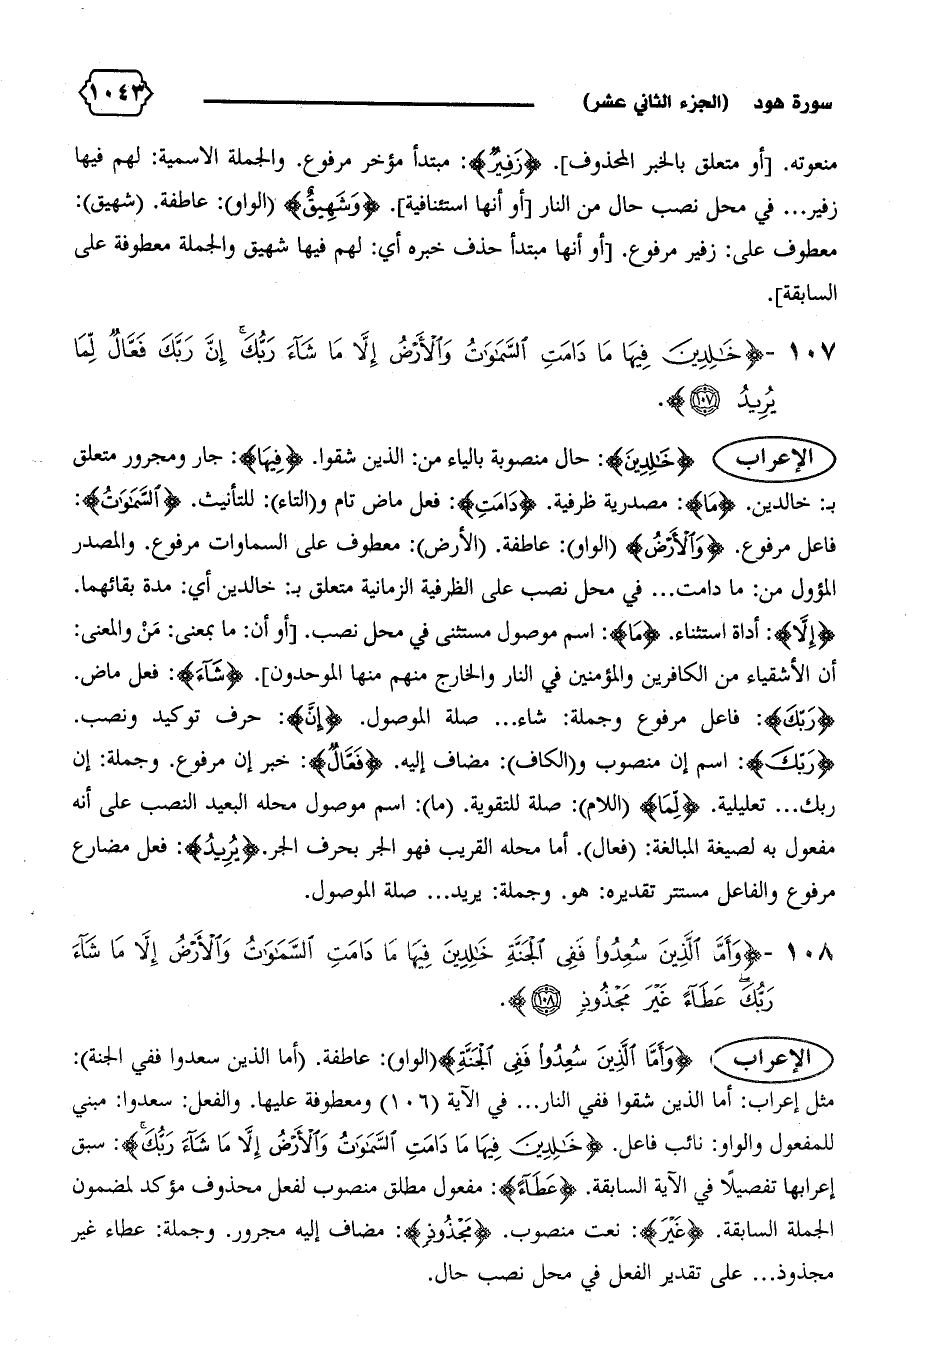 سورة هود (الجزء الثاني عشر) ١٠٤٣
منعوته. [أو متعلق بالخبر المحذوف]. ﴿زَفِيرٌ﴾: مبتدأ مؤخر مرفوع. والجملة الاسمية: لهم فيها
زفير... في محل نصب حال من النار [أو أنها استئنافية]. ﴿وَشَهِيقٌ﴾ (الواو): عاطفة. (شهيق):
معطوف على: زفير مرفوع. [أو أنها مبتدأ حذف خبره أي: لهم فيها شهيق والجملة معطوفة على
السابقة].
١٠٧ -﴿خَٰلِدِينَ فِيهَا مَا دَامَتِ ٱلسَّمَٰوَٰتُ وَٱلْأَرْضُ إِلَّا مَا شَآءَ رَبُّكَ ۚ إِنَّ رَبَّكَ فَعَّالٌ لِّمَا
يُرِيدُ ١٠٧﴾.
الإعراب ﴿خَٰلِدِينَ﴾: حال منصوبة بالياء من: الذين شقوا. ﴿فِيهَا﴾: جار ومجرور متعلق
بـ: خالدين. ﴿مَا﴾: مصدرية ظرفية. ﴿دَامَتِ﴾: فعل ماض تام و(التاء): للتأنيث. ﴿ٱلسَّمَٰوَٰتُ﴾:
فاعل مرفوع. ﴿وَٱلْأَرْضُ﴾ (الواو): عاطفة. (الأرض): معطوف على السماوات مرفوع. والمصدر
المؤول من: ما دامت... في محل نصب على الظرفية الزمانية متعلق بـ: خالدين أي: مدة بقائهما.
﴿إِلَّا﴾: أداة استثناء. ﴿مَا﴾: اسم موصول مستثنى في محل نصب. [أو أن: ما بمعنى: مَنْ والمعنى:
أن الأشقياء من الكافرين والمؤمنين في النار والخارج منهم منها الموحدون]. ﴿شَآءَ﴾: فعل ماض.
﴿رَبُّكَ﴾: فاعل مرفوع وجملة: شاء... صلة الموصول. ﴿إِنَّ﴾: حرف توكيد ونصب.
﴿رَبَّكَ﴾: اسم إن منصوب و(الكاف): مضاف إليه. ﴿فَعَّالٌ﴾: خبر إن مرفوع. وجملة: إن
ربك... تعليلية. ﴿لِّمَا﴾ (اللام): صلة للتقوية. (ما): اسم موصول محله البعيد النصب على أنه
مفعول به لصيغة المبالغة: (فعال). أما محله القريب فهو الجر بحرف الجر.﴿يُرِيدُ﴾: فعل مضارع
مرفوع والفاعل مستتر تقديره: هو. وجملة: يريد... صلة الموصول.
١٠٨ -﴿وَأَمَّا ٱلَّذِينَ سُعِدُوا۟ فَفِى ٱلْجَنَّةِ خَٰلِدِينَ فِيهَا مَا دَامَتِ ٱلسَّمَٰوَٰتُ وَٱلْأَرْضُ إِلَّا مَا شَآءَ
رَبُّكَ ۖ عَطَآءً غَيْرَ مَجْذُوذٍ ١٠٨﴾.
الإعراب ﴿وَأَمَّا ٱلَّذِينَ سُعِدُوا۟ فَفِى ٱلْجَنَّةِ﴾(الواو): عاطفة. (أما الذين سعدوا ففي الجنة):
مثل إعراب: أما الذين شقوا ففي النار... في الآية (١٠٦) ومعطوفة عليها. والفعل: سعدوا: مبني
للمفعول والواو: نائب فاعل. ﴿خَٰلِدِينَ فِيهَا مَا دَامَتِ ٱلسَّمَٰوَٰتُ وَٱلْأَرْضُ إِلَّا مَا شَآءَ رَبُّكَ ۚ﴾: سبق
إعرابها تفصيلًا في الآية السابقة. ﴿عَطَآءً﴾: مفعول مطلق منصوب لفعل محذوف مؤكد لمضمون
الجملة السابقة. ﴿غَيْرَ﴾: نعت منصوب. ﴿مَجْذُوذٍ﴾: مضاف إليه مجرور. وجملة: عطاء غير
مجذوذ... على تقدير الفعل في محل نصب حال.